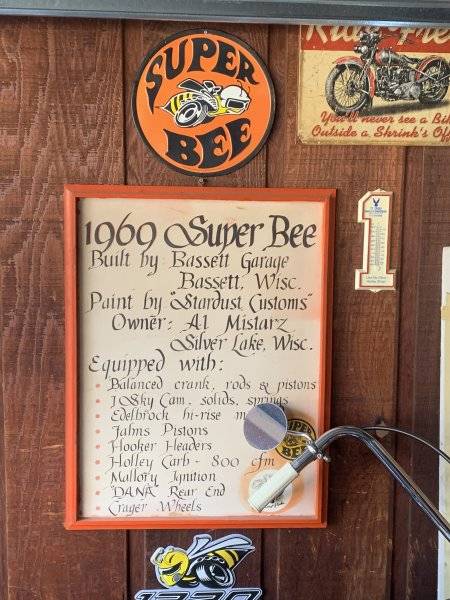 SUPER
BEE
You'll never see a Bik
Outside a Shrink's Off
1969 Super Bee
Built by Bassett Garage
Bassett, Wisc.
Paint by "Stardust Customs"
Owner: Al Mistarz
Silver Lake, Wisc.
Equipped with:
• Balanced crank, rods & pistons
• J Sky Cam, solids, springs
• Edelbrock hi-rise m
• Jahns Pistons
• Hooker Headers
• Holley Carb - 800 cfm
• Mallory Ignition
• "DANA" Rear End
• Crager Wheels
SUPER
BEE
1320